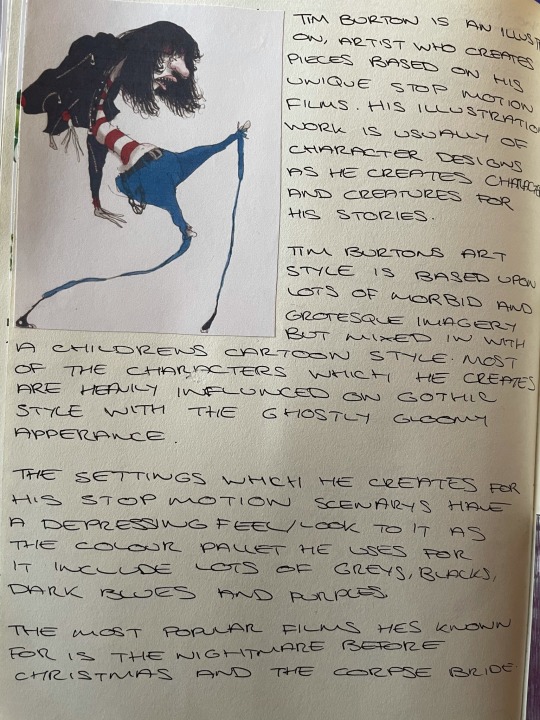 TIM BURTON IS AN ILLUST
ON, ARTIST WHO CREATES
PIECES BASED ON HIS
UNIQUE STOP MOTION
FILMS. HIS ILLUSTRATIO
WORK IS USUALLY OF
CHARACTER DESIGNS
AS HE CREATES CHARACTE
AND CREATURES FOR
HIS STORIES.
TIM BURTONS ART
STYLE IS BASED UPON
LOTS OF MORBID AND
GROTESQUE IMAGERY
BUT MIXED IN WITH
A CHILDRENS CARTOON STYLE. MOST
OF THE CHARACTERS WHICH HE CREATES
ARE HEAVILY INFLUNCED ON GOTHIC
STYLE WITH THE GHOSTLY GLOOMY
APPERANCE.
THE SETTINGS WHICH HE CREATES FOR
HIS STOP MOTION SCENARYS HAVE
A DEPRESSING FEEL/LOOK TO IT AS
THE COLOUR PALLET HE USES FOR
IT INCLUDE LOTS OF GREYS, BLACKS,
DARK BLUES AND PURPLES.
THE MOST POPULAR FILMS HES KNOWN
FOR IS THE NIGHTMARE BEFORE
CHRISTMAS AND THE CORPSE BRIDE